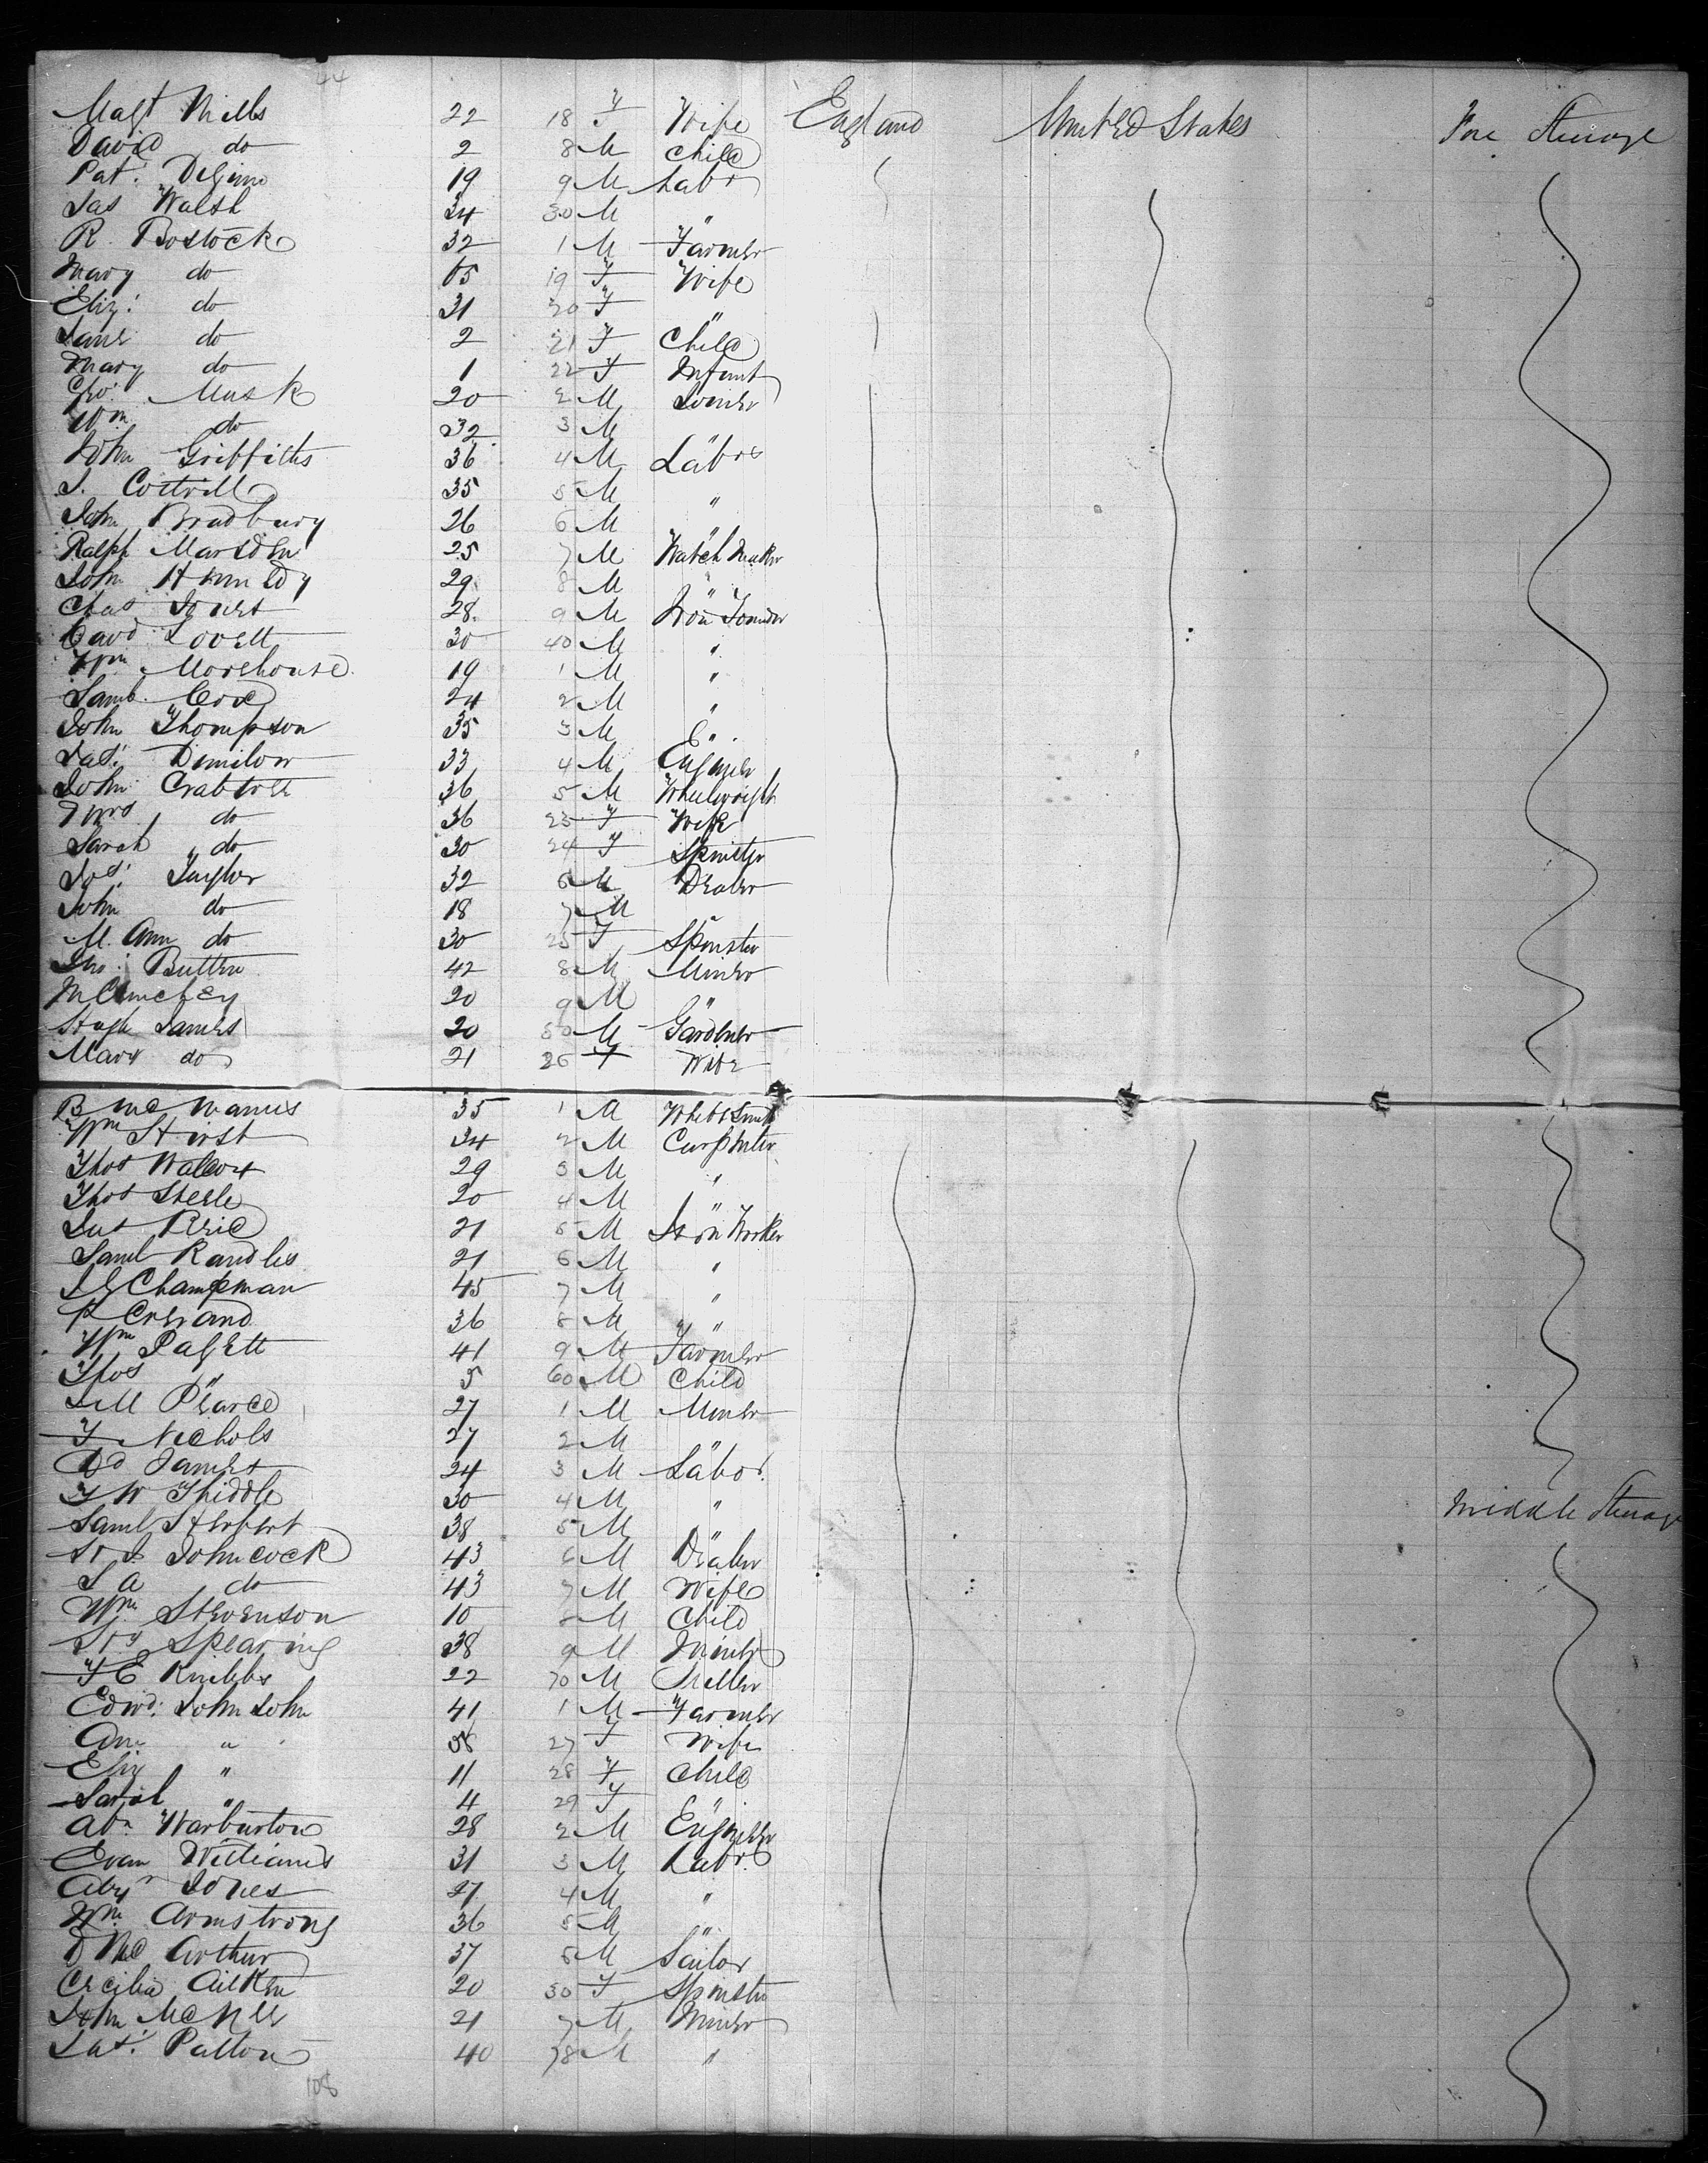 44
Magt Mills 22 18 F Wife England United States Fore Steerage
David do 2 8 M Child
Pat. 19 9 M Labr
Jas Walsh 34 30 M "
R. Bostock 32 1 M Farmer
Mary do 65 19 F Wife
Eliz. do 31 20 F "
Jane do 2 21 F Child
Mary do 1 22 F Infant
Geo. Musk 20 2 M Joiner
Wm do 32 3 M "
John Griffiths 36 4 M Labr
J. Cottrill 35 5 M "
John Bradbury 26 6 M "
Ralph Marsden 25 7 M Watch Maker
John Kennedy 29 8 M "
Chas Jones 28 9 M Iron Founder
David Lovett 30 40 M "
Wm Morehouse 19 1 M "
Saml. Cox 24 2 M "
John Thompson 35 3 M "
Jas. 33 4 M Engineer
John Crabtree 36 5 M Wheelwright
Mrs do 36 23 F Wife
Sarah do 30 24 F Spinster
Jos. Taylor 32 6 M Dealer
John do 18 7 M "
M. Ann do 30 25 F Spinster
42 8 M Miner
20 9 M "
Hugh James 20 50 M Gardener
Mary do 21 26 F Wife
B McManus 35 1 M Whitesmith
Wm Hirst 34 2 M Carpenter
Thos 29 3 M "
Thos Steele 20 4 M "
21 5 M Iron Worker
Saml Randles 21 6 M "
Champman 45 7 M "
36 8 M "
Wm Pagett 41 9 M Farmer
Thos " 5 60 M Child
Pearce 27 1 M Miner
T Nichols 27 2 M "
James 24 3 M Labor.
30 4 M "
Saml Herbert 38 5 M "
Johncock 43 6 M Dealer
S A do 43 7 M Wife
Wm Stevenson 10 8 M Child
Spearing 38 9 M Miner
Knibbs 22 70 M
Edwd. John John 41 1 M Farmer
Ann " 38 27 F Wife
Eliz " 11 28 F Child
Sarah " 4 29 F "
Abm Warburton 28 2 M Engineer
Evan Williams 31 3 M Labr
Jones 27 4 M "
Wm Armstrong 36 5 M "
D McArthur 37 6 M Sailor
Cecilia Aitken 20 30 F Spinster
John McNee 21 7 M Miner
Jas. Patton 40 78 M "
Middle Steerage
108